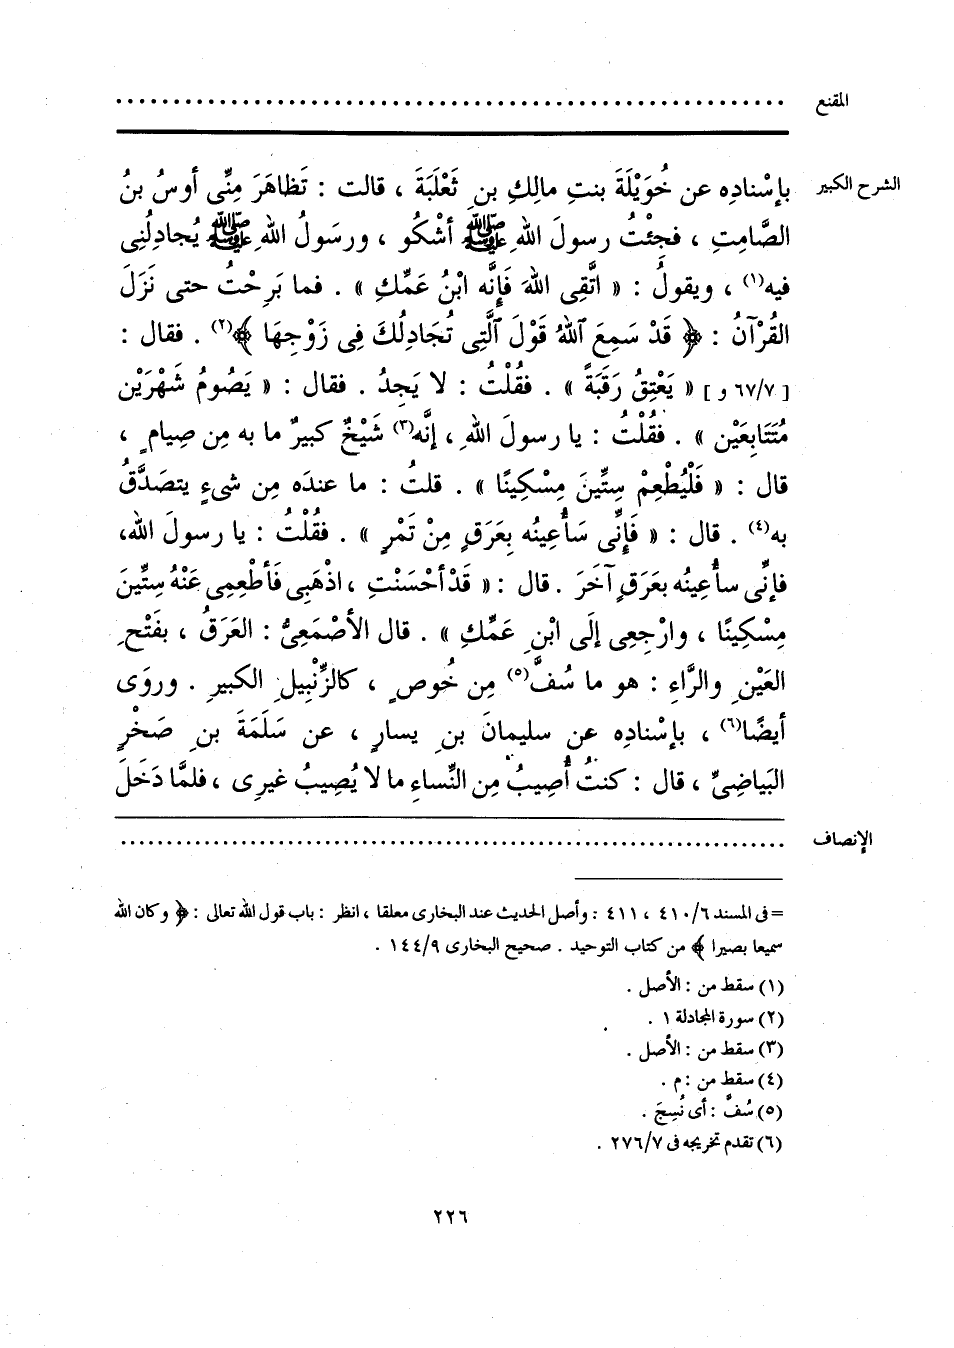 المقنع ..........................................................
الشرح الكبير بإسْنادِه عن خُوَيْلَةَ بنتِ مالِكِ بنِ ثَعْلَبَةَ ، قالت : تَظاهَرَ مِنِّى أوسُ بنُ
الصَّامِتِ ، فجِئْتُ رسولَ اللهِ ﷺ أشْكُو ، ورسَولُ اللهِ ﷺ يُجادِلُنِى
فيه(١) ، ويقولُ : « اتَّقِى اللهَ فَإِنَّه ابْنُ عَمِّكِ » . فما بَرِحْتُ حتى نَزَلَ
القُرْآنُ : ﴿ قَدْ سَمِعَ ٱللهُ قَوْلَ ٱلَّتِى تُجَادِلُكَ فِى زَوْجِهَا ﴾(٢) . فقال :
[ ٦٧/٧ و ] « يَعْتِقُ رَقَبَةً » . فقُلْتُ : لا يَجِدُ . فقال : « يَصُومُ شَهْرَيْن
مُتَتَابِعَيْن » . فقُلْتُ : يا رسولَ اللهِ ، إنَّه(٣) شَيْخٌ كبيرٌ ما به مِن صِيامٍ ،
قال : « فَلْيُطْعِمْ سِتِّينَ مِسْكِينًا » . قلتُ : ما عندَه مِن شىءٍ يتصَدَّقُ
به(٤) . قال : « فَإِنِّى سَأُعِينُه بِعَرَقٍ مِنْ تَمْرٍ » . فقُلْتُ : يا رسولَ الله،
فإنِّى سأُعِينُه بعَرَقٍ آخَرَ . قال : « قَدْ أحْسَنْتِ ، اذْهَبِى فَأطْعِمِى عَنْهُ سِتِّينَ
مِسْكِينًا ، وارْجِعِى إلَى ابْنِ عَمِّكِ » . قال الأصْمَعِىُّ : العَرَقُ ، بفَتْحِ
العَيْنِ والرَّاءِ : هو ما سُفَّ(٥) مِن خُوصٍ ، كالزِّنْبِيلِ الكبيرِ . وروَى
أيضًا(٦) ، بإسْنادِه عن سليمانَ بنِ يسارٍ ، عن سَلَمَةَ بنِ صَخْرٍ
البَياضِىِّ ، قال : كنتُ أُصِيبُ مِن النِّساءِ ما لا يُصِيبُ غيرِى ، فلمَّا دَخَلَ
الإنصاف ..........................................................
= فى المسند ٤١٠/٦ ، ٤١١ : وأصل الحديث عند البخارى معلقا ، انظر : باب قول الله تعالى : ﴿ وكان الله
سميعا بصيرا ﴾ من كتاب التوحيد . صحيح البخارى ١٤٤/٩ .
(١) سقط من : الأصل .
(٢) سورة المجادلة ١ .
(٣) سقط من : الأصل .
(٤) سقط من : م .
(٥) سُفَّ : أى نُسِجَ .
(٦) تقدم تخريجه فى ٢٧٦/٧ .
٢٢٦